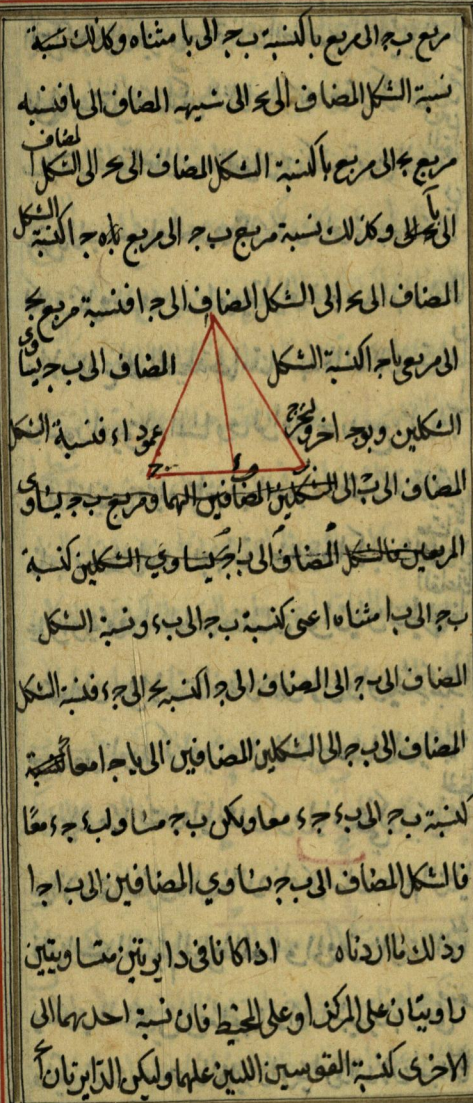 مربع ب ج الى مربع با كنسبة ب ج الى با مثناه وكذلك نسبة
نسبة الشكل المضاف الى ب ج الى شبيهه المضاف الى با فنسبة
المضاف
مربع ب ج الى مربع با كنسبة الشكل المضاف الى ب ج الى الشكل
الى با وكذلك نسبة مربع ب ج الى مربع ج ا كنسبة الشكل
المضاف الى ب ج الى الشكل المضاف الى ج ا فنسبة مربع ب ج
الى مربعي با ج ا كنسبة الشكل المضاف الى ب ج يساوي
الشكلين وبوجه اخر ولنخرج عمود ا ء فنسبة الشكل
المضاف الى ب ج الى الشكلين المضافين اليهما ومربع ب ج يساوي
المربعين فالشكل المضاف الى ب ج يساوي الشكلين كنسبة
ب ج الى ب ا مثناه اعنى كنسبة ب ج الى ب ء ونسبة الشكل
المضاف الى ب ج الى المضاف الى ج ا كنسبة ب ج الى ج ء فنسبة الشكل
المضاف الى ب ج الى الشكلين المضافين الى با ج ا معا
كنسبة ب ج الى ب ء ج ء معا ولكن ب ج مساو لب ء ج ء معًا
فالشكل المضاف الى ب ج يساوي المضافين الى ب ا ج ا
وذلك ما اردناه اذا كانا فى دايرتين متساويتين
زاويتان على المركز او على المحيط فان نسبة احدهما الى
الاخرى كنسبة القوسين اللتين عليهما وليكن الدايرتان ا ب ج